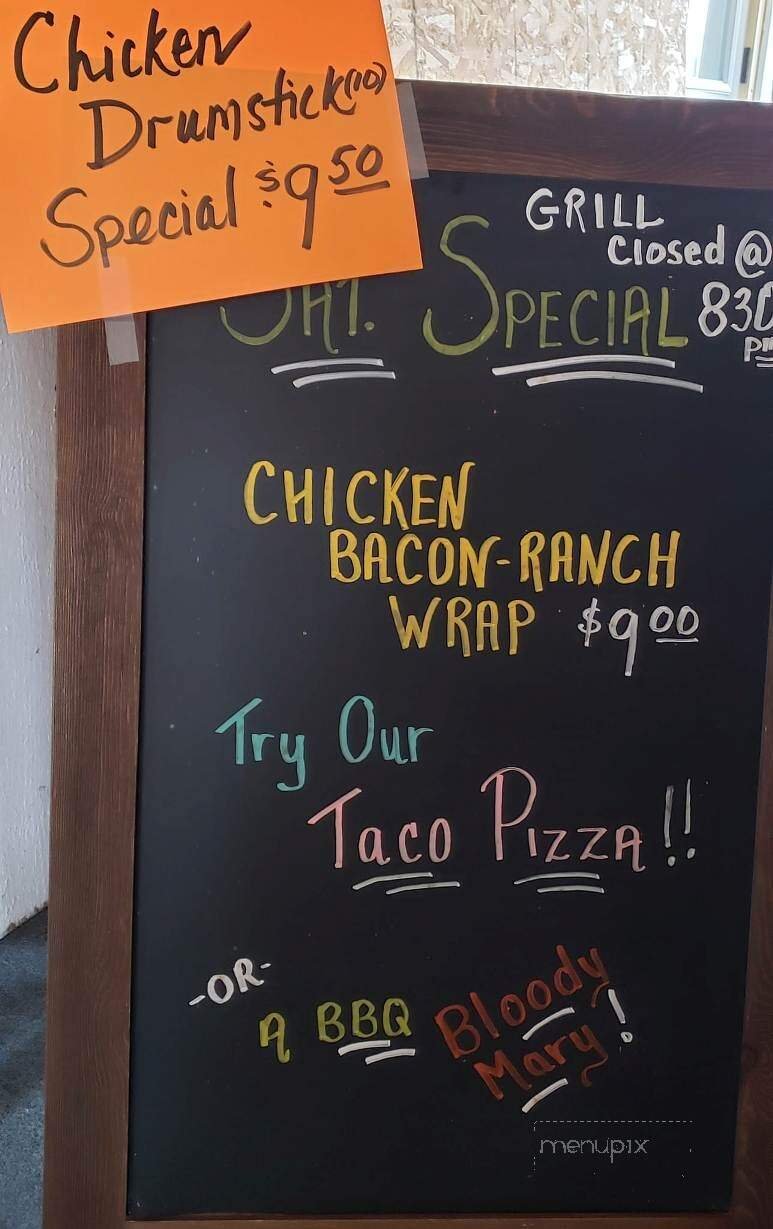 Chicken
Drumstick(10)
Special $9 50
GRILL
Closed @
830
pm
SAT. SPECIAL
CHICKEN
BACON-RANCH
WRAP $9 00
Try Our
TACO PIZZA!!
-OR-
A BBQ Bloody
Mary!
menupix